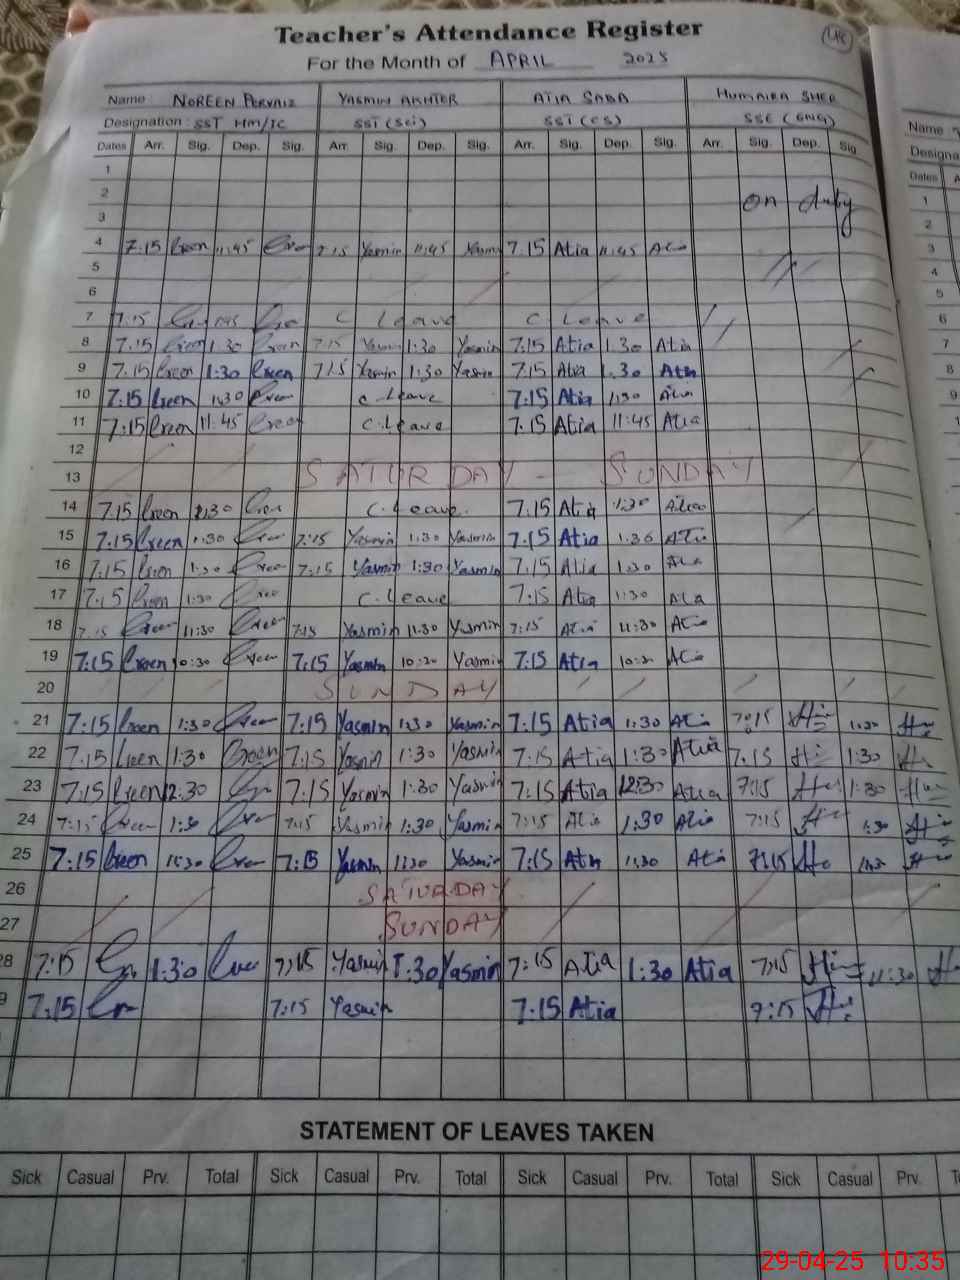 Teacher's Attendance Register
For the Month of APRIL 2025
Name: NOREEN PERVAIZ YASMIN AKHTER ATIA SABA HUMAIRA SHER
Designation: SST HM/IC SST (Sci) SST (CS) SSE (ENG)
Dates Arr. Sig. Dep. Sig. Arr. Sig. Dep. Sig. Arr. Sig. Dep. Sig. Arr. Sig. Dep. Sig
1
2 on duty
3
4 7:15 11:45 7:15 Yasmin 11:45 Yasmin 7:15 Atia 11:45 Atia
5
6
7 7:15 C Leave C Leave
8 7:15 1:30 7:15 Yasmin 1:30 Yasmin 7:15 Atia 1:30 Atia
9 7:15 1:30 7:15 Yasmin 1:30 Yasmin 7:15 Atia 1:30 Atia
10 7:15 1:30 C.Leave 7:15 Atia 1:30 Atia
11 7:15 11:45 C.Leave 7:15 Atia 11:45 Atia
12
13 SATURDAY - SUNDAY
14 7:15 1:30 C.Leave 7:15 Atia 1:30 Atia
15 7:15 1:30 7:15 Yasmin 1:30 Yasmin 7:15 Atia 1:30 Atia
16 7:15 1:30 7:15 Yasmin 1:30 Yasmin 7:15 Atia 1:30 Atia
17 7:15 1:30 C.Leave 7:15 Atia 1:30 Atia
18 7:15 11:30 7:15 Yasmin 11:30 Yasmin 7:15 Atia 11:30 Atia
19 7:15 10:30 7:15 Yasmin 10:30 Yasmin 7:15 Atia 10:30 Atia
20 SUNDAY
21 7:15 1:30 7:15 Yasmin 1:30 Yasmin 7:15 Atia 1:30 Atia 7:15 1:30
22 7:15 1:30 7:15 Yasmin 1:30 Yasmin 7:15 Atia 1:30 Atia 7:15 1:30
23 7:15 12:30 7:15 Yasmin 1:30 Yasmin 7:15 Atia 12:30 Atia 7:15 1:30
24 7:15 1:30 7:15 Yasmin 1:30 Yasmin 7:15 Atia 1:30 Atia 7:15 1:30
25 7:15 11:30 7:15 Yasmin 11:30 Yasmin 7:15 Atia 11:30 Atia 7:15
26 SATURDAY
27 SUNDAY
28 7:15 1:30 7:15 Yasmin 1:30 Yasmin 7:15 Atia 1:30 Atia 7:15 11:30
9 7:15 7:15 Yasmin 7:15 Atia 7:15
STATEMENT OF LEAVES TAKEN
Sick Casual Prv. Total Sick Casual Prv. Total Sick Casual Prv. Total Sick Casual Prv.
Name
Designa
Dates A
1
2
3
4
5
6
7
8
9
29-04-25 10:35